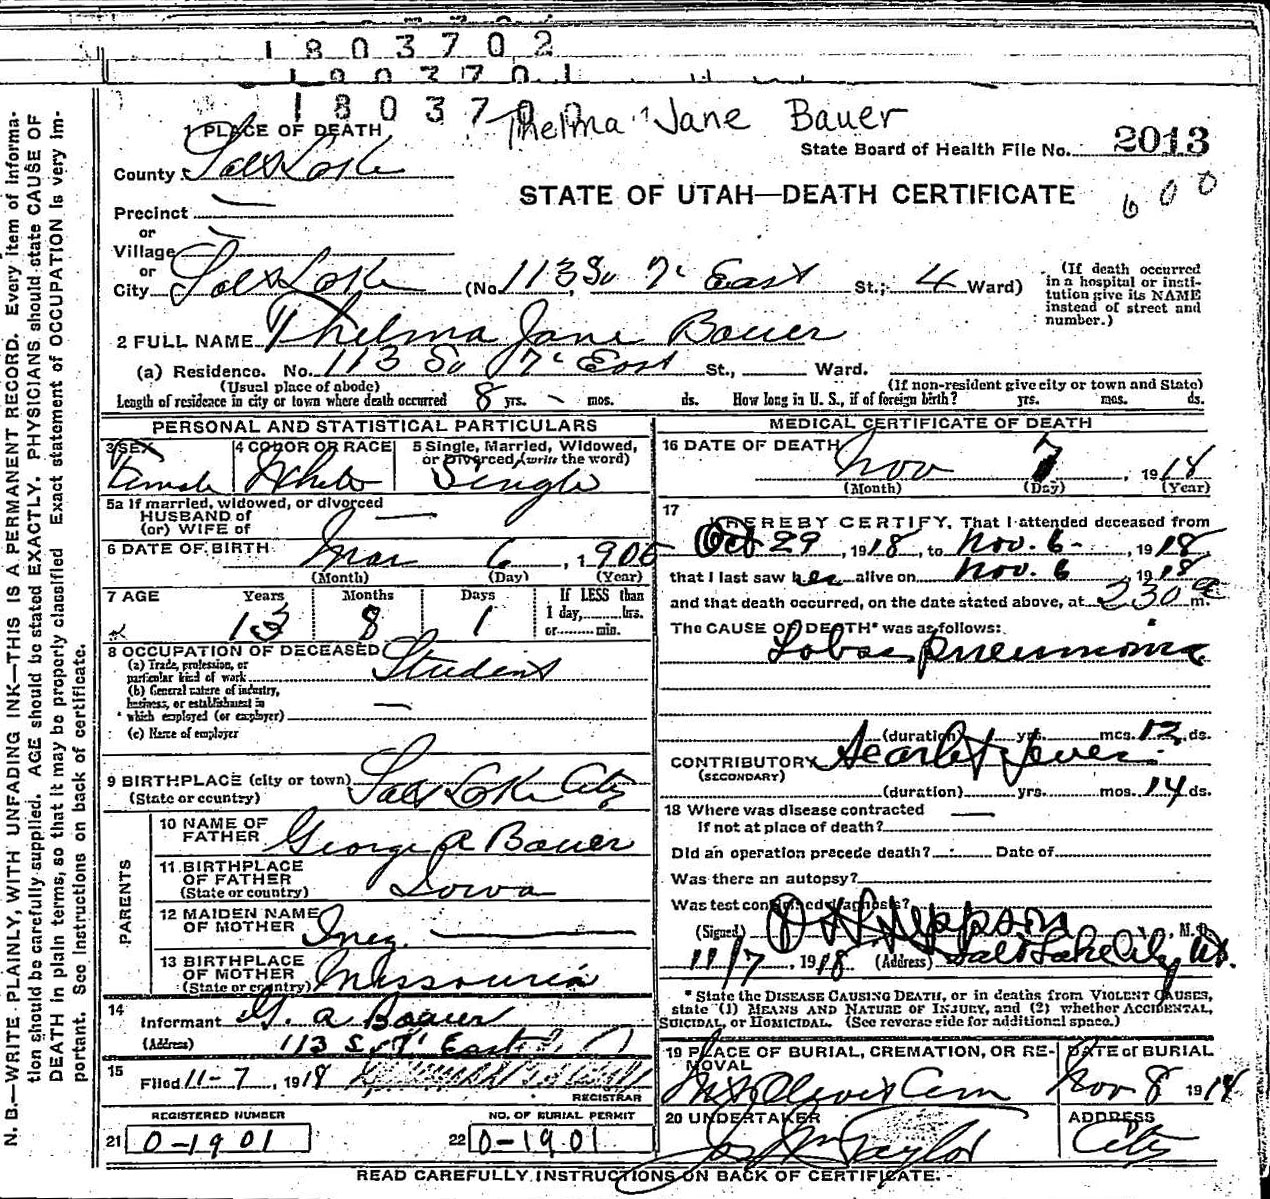 1803702
1803701
18037
Thelma Jane Bauer
1 PLACE OF DEATH
State Board of Health File No. 2013
County Salt Lake
STATE OF UTAH—DEATH CERTIFICATE
600
Precinct —
or
Village
or
City Salt Lake (No. 113 So 7th East St.; 4 Ward)
(If death occurred
in a hospital or insti-
tution give its NAME
instead of street and
number.)
2 FULL NAME Thelma Jane Bauer
(a) Residence. No. 113 So 7th East St., Ward.
(Usual place of abode) (If non-resident give city or town and State)
Length of residence in city or town where death occurred 8 yrs. - mos. ds. How long in U. S., if of foreign birth? yrs. mos. ds.
PERSONAL AND STATISTICAL PARTICULARS
3 SEX 4 COLOR OR RACE 5 Single, Married, Widowed,
or Divorced, (write the word)
Female White Single
5a If married, widowed, or divorced
HUSBAND OF
(or) WIFE OF —
6 DATE OF BIRTH Mar 6, 1905
(Month) (Day) (Year)
7 AGE Years Months Days If LESS than
1 day, hrs.
or min.
13 8 1
8 OCCUPATION OF DECEASED Student
(a) Trade, profession, or
particular kind of work
(b) General nature of industry,
business, or establishment in
which employed (or employer) —
(c) Name of employer
9 BIRTHPLACE (city or town) Salt Lake City
(State or country)
PARENTS
10 NAME OF
FATHER George A Bauer
11 BIRTHPLACE
OF FATHER
(State or country) Iowa
12 MAIDEN NAME
OF MOTHER Inez —
13 BIRTHPLACE
OF MOTHER
(State or country) Missouri
14
Informant G. A Bauer
(Address) 113 S. 7 East
15
Filed 11-7, 1918
REGISTRAR
REGISTERED NUMBER NO. OF BURIAL PERMIT
21 0-1901 22 0-1901
MEDICAL CERTIFICATE OF DEATH
16 DATE OF DEATH Nov 7, 1918
(Month) (Day) (Year)
17
I HEREBY CERTIFY, That I attended deceased from
Oct 29, 1918, to Nov. 6-, 1918
that I last saw her alive on Nov. 6 1918
and that death occurred, on the date stated above, at 230 a m.
The CAUSE OF DEATH* was as follows:
Lobar pneumonia
(duration) yrs. mos. 12 ds.
CONTRIBUTORY Scarlet fever
(SECONDARY)
(duration) yrs. mos. 14 ds.
18 Where was disease contracted
If not at place of death? —
Did an operation precede death? Date of
Was there an autopsy?
Was test confirmed diagnosis?
(Signed) Jeppson, M. D.
11/7, 1918 (Address) Salt Lake City Ut.
* State the DISEASE CAUSING DEATH, or in deaths from VIOLENT CAUSES,
state (1) MEANS AND NATURE OF INJURY, and (2) whether ACCIDENTAL,
SUICIDAL, or HOMICIDAL. (See reverse side for additional space.)
19 PLACE OF BURIAL, CREMATION, OR RE-
MOVAL
DATE of BURIAL
Mt Olivet Cem Nov 8 1918
20 UNDERTAKER ADDRESS
Taylor City
READ CAREFULLY INSTRUCTIONS ON BACK OF CERTIFICATE.
N. B.—WRITE PLAINLY, WITH UNFADING INK—THIS IS A PERMANENT RECORD. Every item of informa-
tion should be carefully supplied. AGE should be stated EXACTLY. PHYSICIANS should state CAUSE OF
DEATH in plain terms, so that it may be properly classified. Exact statement of OCCUPATION is very im-
portant. See instructions on back of certificate.